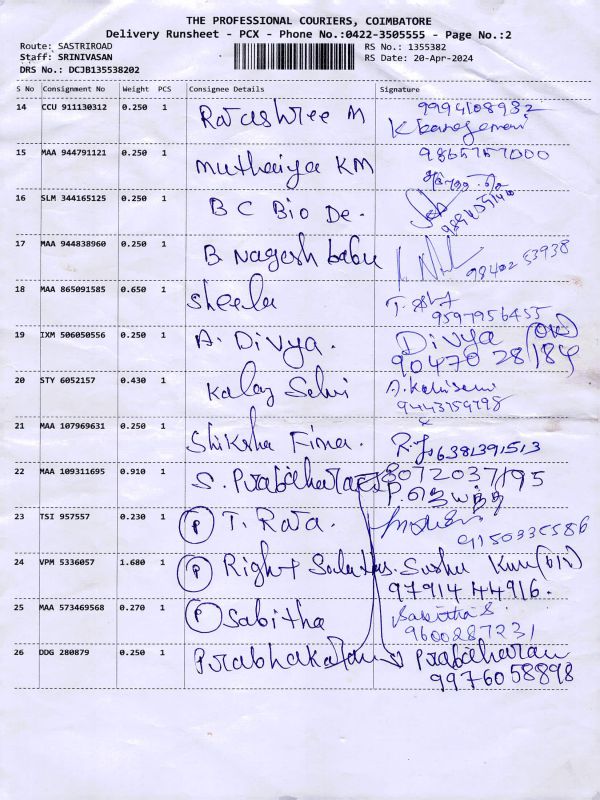 THE PROFESSIONAL COURIERS, COIMBATORE
Delivery Runsheet - PCX - Phone No.:0422-3505555 - Page No.:2
Route: SASTRIROAD
RS No.: 1355382
Staff: SRINIVASAN
RS Date: 20-Apr-2024
DRS No.: DCJB135538202
S No Consignment No Weight PCS Consignee Details Signature
14 CCU 911130312 0.250 1 Rajashree M 9994108932
15 MAA 944791121 0.250 1 Muthaiya KM 9865757000
16 SLM 344165125 0.250 1 B C Bio De.
17 MAA 944838960 0.250 1 B. Nagesh babu 98402 53938
18 MAA 865091585 0.650 1 Sheela
9597956455
19 IXM 506050556 0.250 1 A. Divya. Divya
90470 28184
20 STY 6052157 0.430 1 Kalay Selvi
9443159798
21 MAA 107969631 0.250 1 Shiksha Fina. 6381391513
22 MAA 109311695 0.910 1 S. Prabaharan 8072037195
23 TSI 957557 0.230 1 P T. Raja.
9150335586
24 VPM 5336057 1.680 1 P Right
9791444916.
25 MAA 573469568 0.270 1 P Sabitha Sabitha S
9600287231
26 DDG 280879 0.250 1 Prabhakaran Prabaharan
9976058898